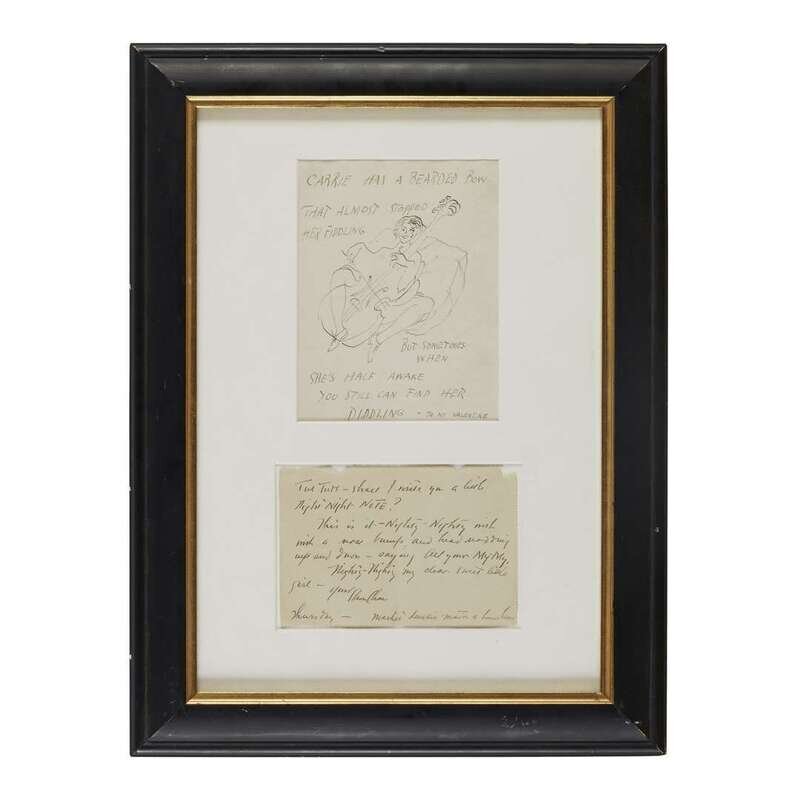 CARRIE HAS A BEARDED BOW
THAT ALMOST STOPPED
HER FIDDLING
BUT SOMETIMES
WHEN
SHE'S HALF AWAKE
YOU STILL CAN FIND HER
DIDDLING - TO MY VALENTINE
Tut Tut - shall I write you a little
Night Night NOTE?
This is it - Nighty-Nighty with
with a nose bumps and head nodding
up and down - saying All your My My,
Nighty-Nighty my dear sweet little
girl - your
Thursday -